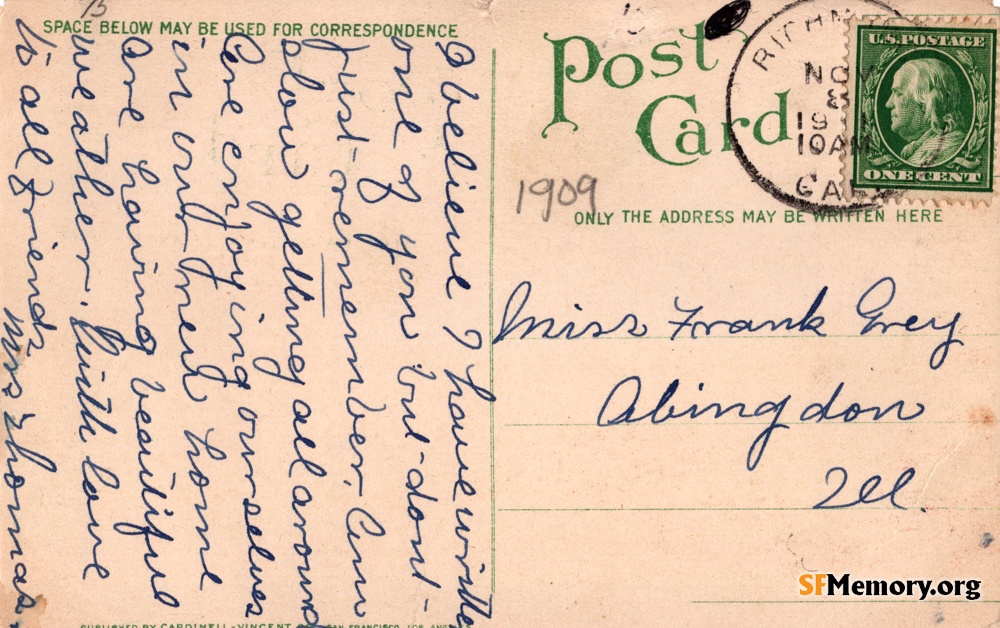 SPACE BELOW MAY BE USED FOR CORRESPONDENCE
I believe I have writte
one of you but dont-
just remember. Am
slow getting all around
Are enjoying ourselves
in our new home
are having beautiful
weather. With love
to all friends
Mrs Thomas.
Post
Card
RICHM
NOV
8
19
10 AM
CAL
U.S. POSTAGE
ONE CENT
1909
ONLY THE ADDRESS MAY BE WRITTEN HERE
Miss Frank Grey
Abingdon
Ill.
PUBLISHED BY CARDINELL-VINCENT SAN FRANCISCO, LOS ANGELES
SFMemory.org